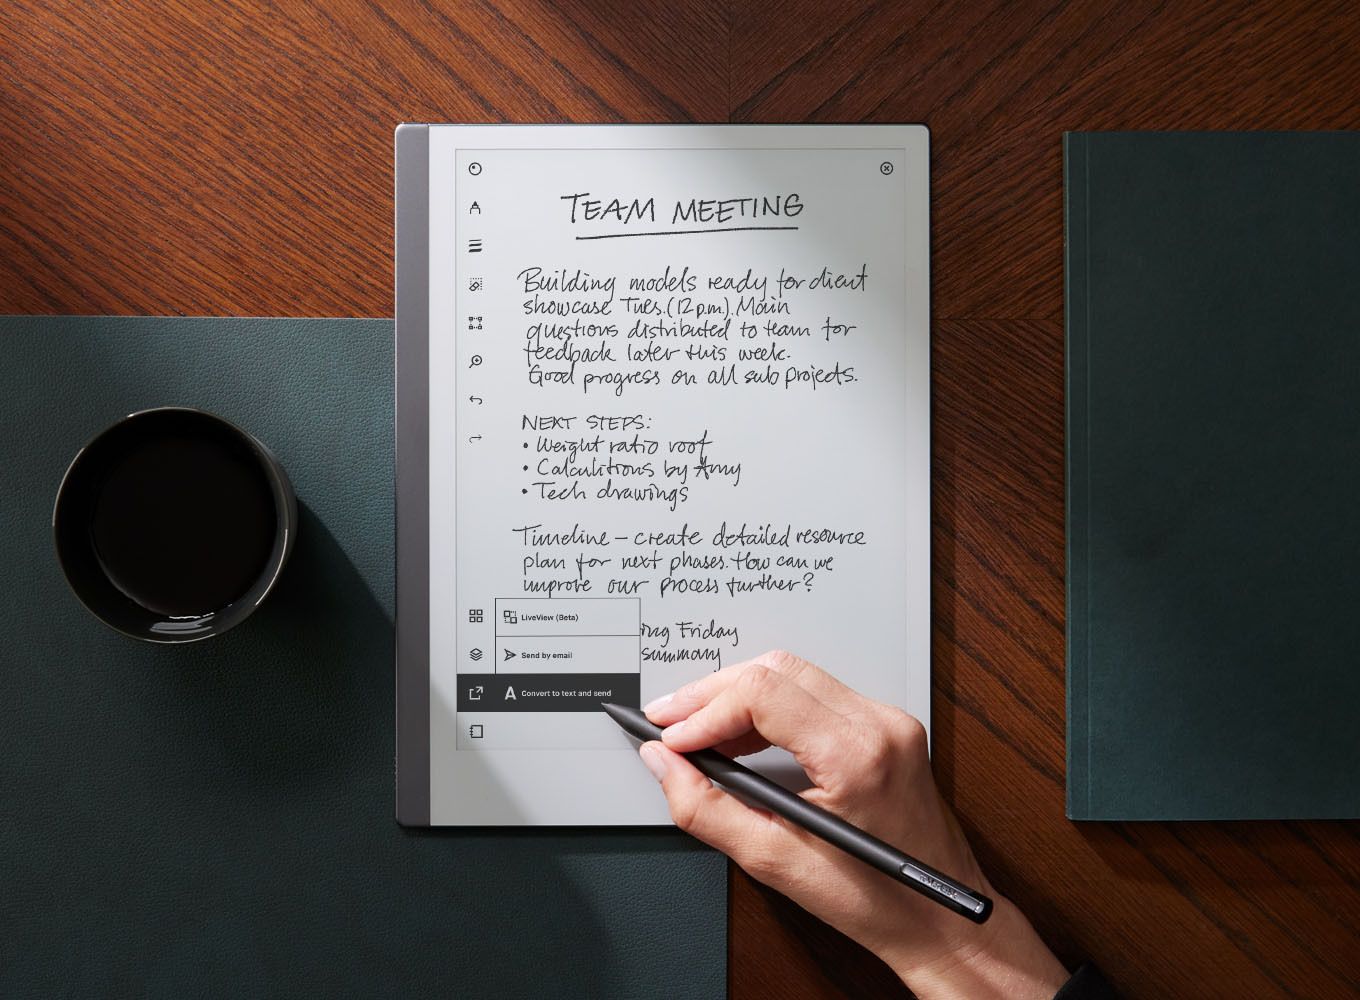 TEAM MEETING
Building models ready for client
showcase Tues. (12 p.m.). Main
questions distributed to team for
feedback later this week.
Good progress on all sub projects.
NEXT STEPS:
• Weight ratio roof
• Calculations by Amy
• Tech drawings
Timeline – create detailed resource
plan for next phases. How can we
improve our process further?
Friday
summary
LiveView (Beta)
Send by email
A Convert to text and send